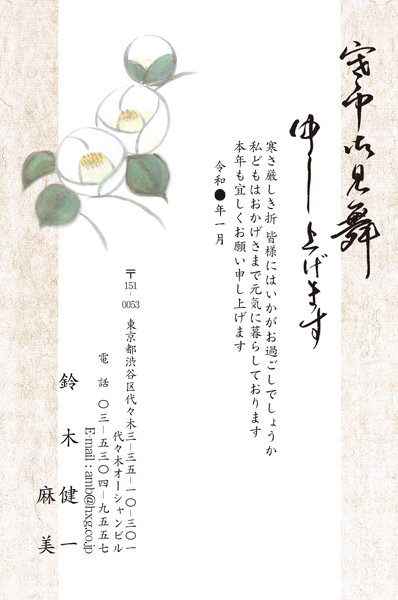 寒中御見舞
申し上げます
寒さ厳しき折 皆様にはいかがお過ごしでしょうか
私どもはおかげさまで元気に暮らしております
本年も宜しくお願い申し上げます
令和●年一月
〒151-0053 東京都渋谷区代々木三-三五-一〇-三〇一
代々木オーシャンビル
電話 〇三-五三〇四-九五五七
E-mail : amb@hxg.co.jp
鈴木健一
麻美